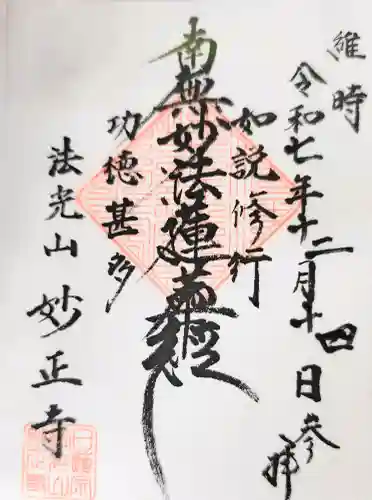 維時
令和七年十二月十四日参拝
如説修行
南無妙法蓮華経
功徳甚多
法光山妙正寺